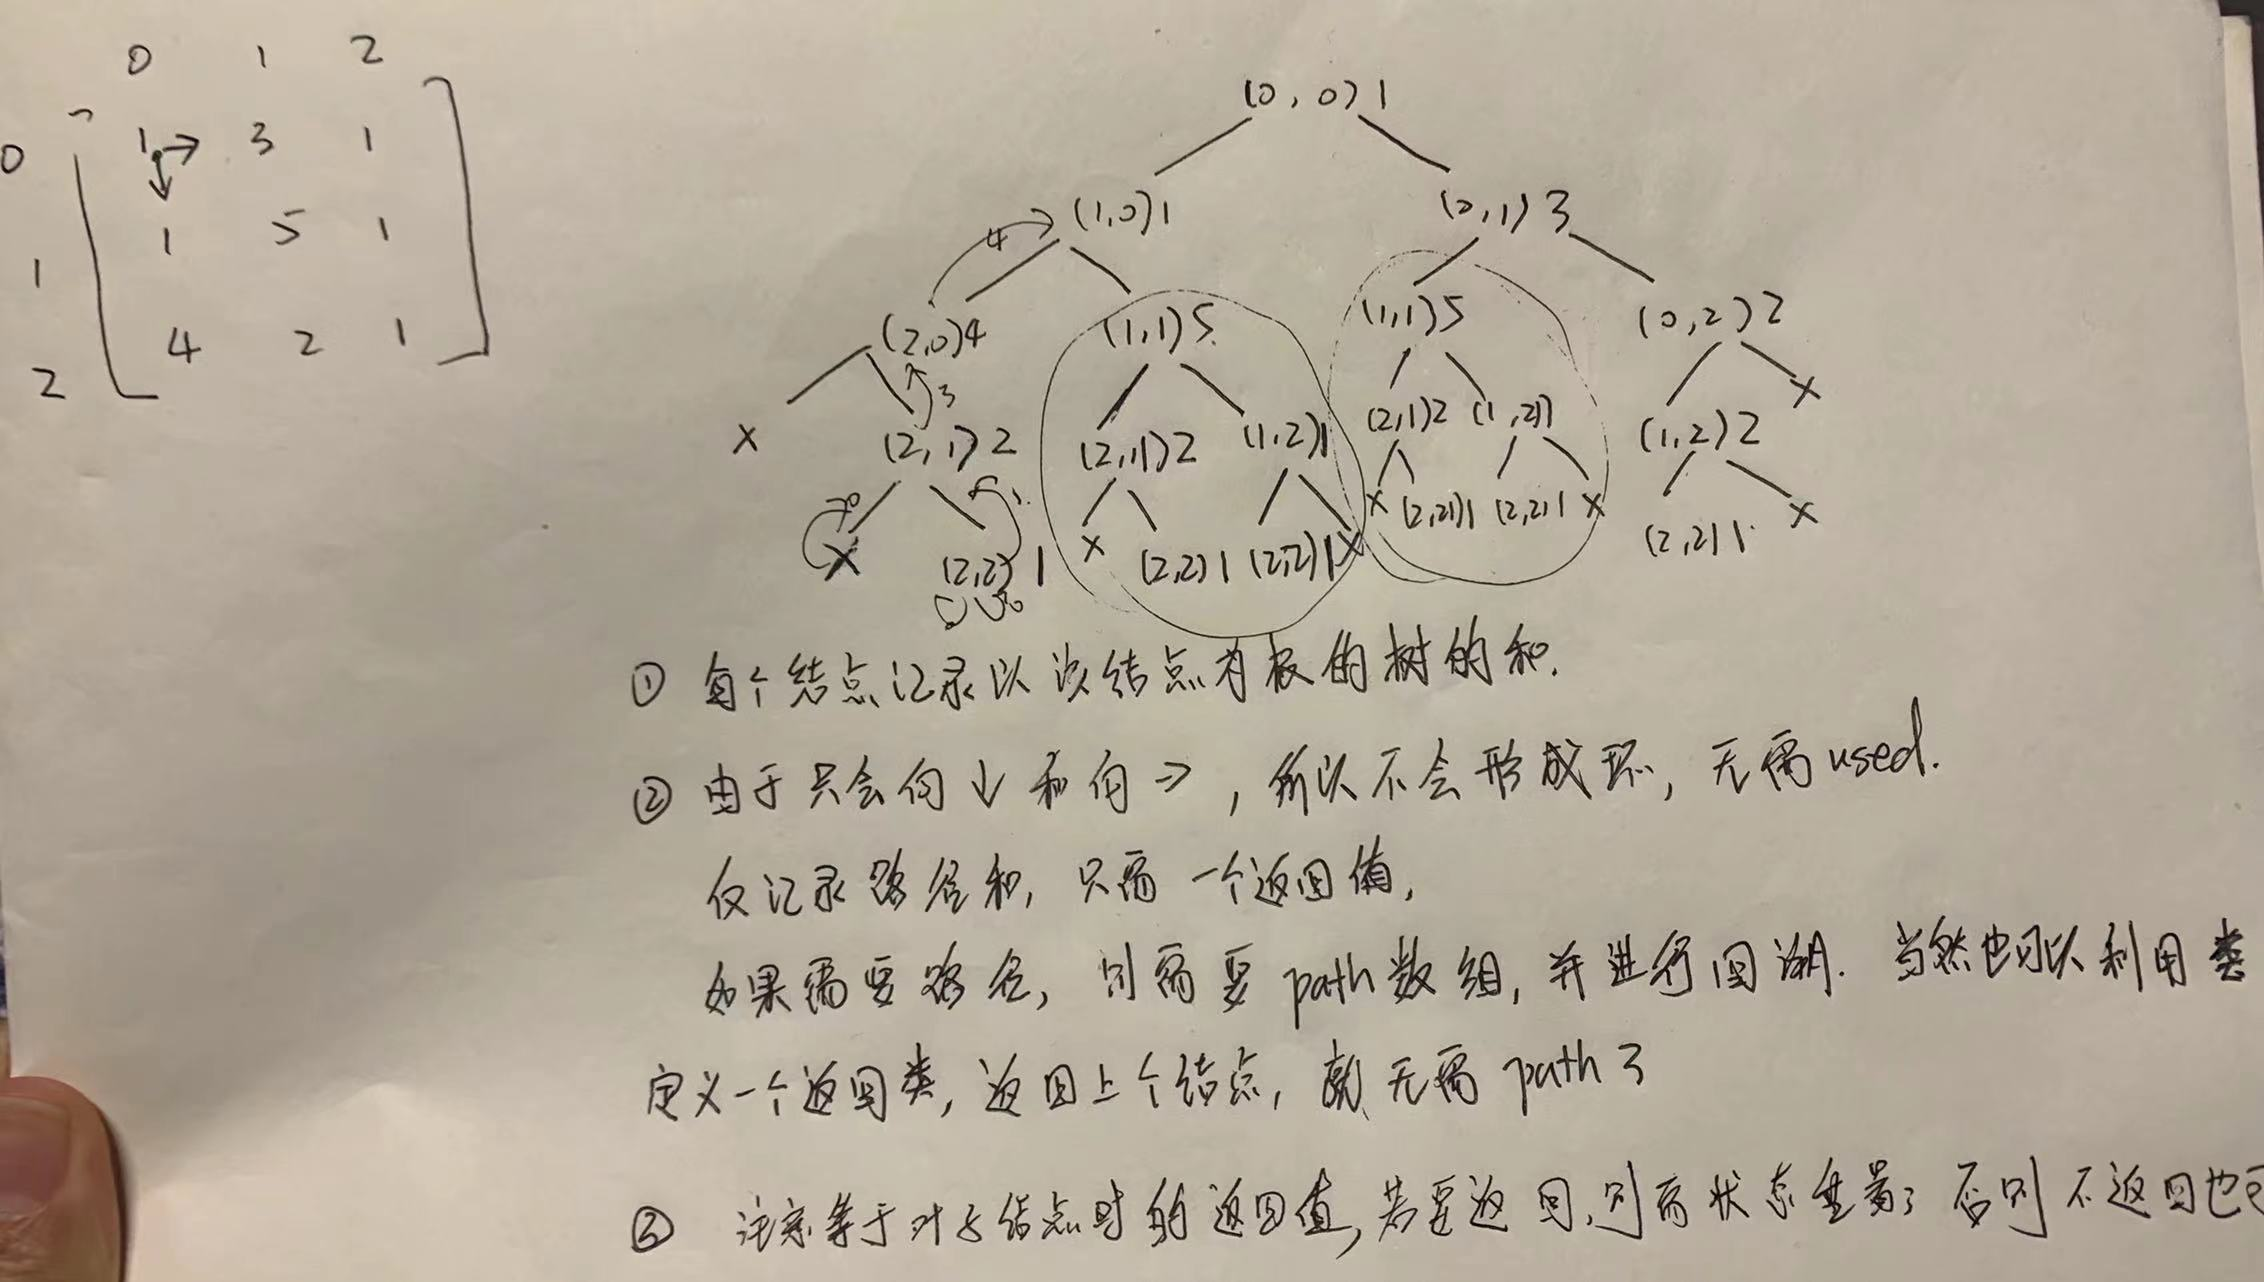 0 1 2
0 1 → 3 1
↓
1 1 5 1
2 4 2 1
(0,0)1
(1,0)1 (0,1)3
4
(2,0)4 (1,1)5 (1,1)5 (0,2)2
3
× (2,1)2 (2,1)2 (1,2)1 (2,1)2 (1,2)1 (1,2)2 ×
× (2,2)1 × (2,2)1 (2,2)1 × × (2,2)1 (2,2)1 × (2,2)1 ×
① 每个结点记录以次结点为根的树的和.
② 由于只会向↓和向→, 所以不会形成环, 无需used.
仅记录路径和, 只需一个返回值,
如果需要路径, 则需要path数组, 并进行回溯. 当然也可以利用类
定义一个返回类, 返回上个结点, 就无需path了
③ 注意等于叶子结点时的返回值, 若要返回, 则需状态重置; 否则不返回也可